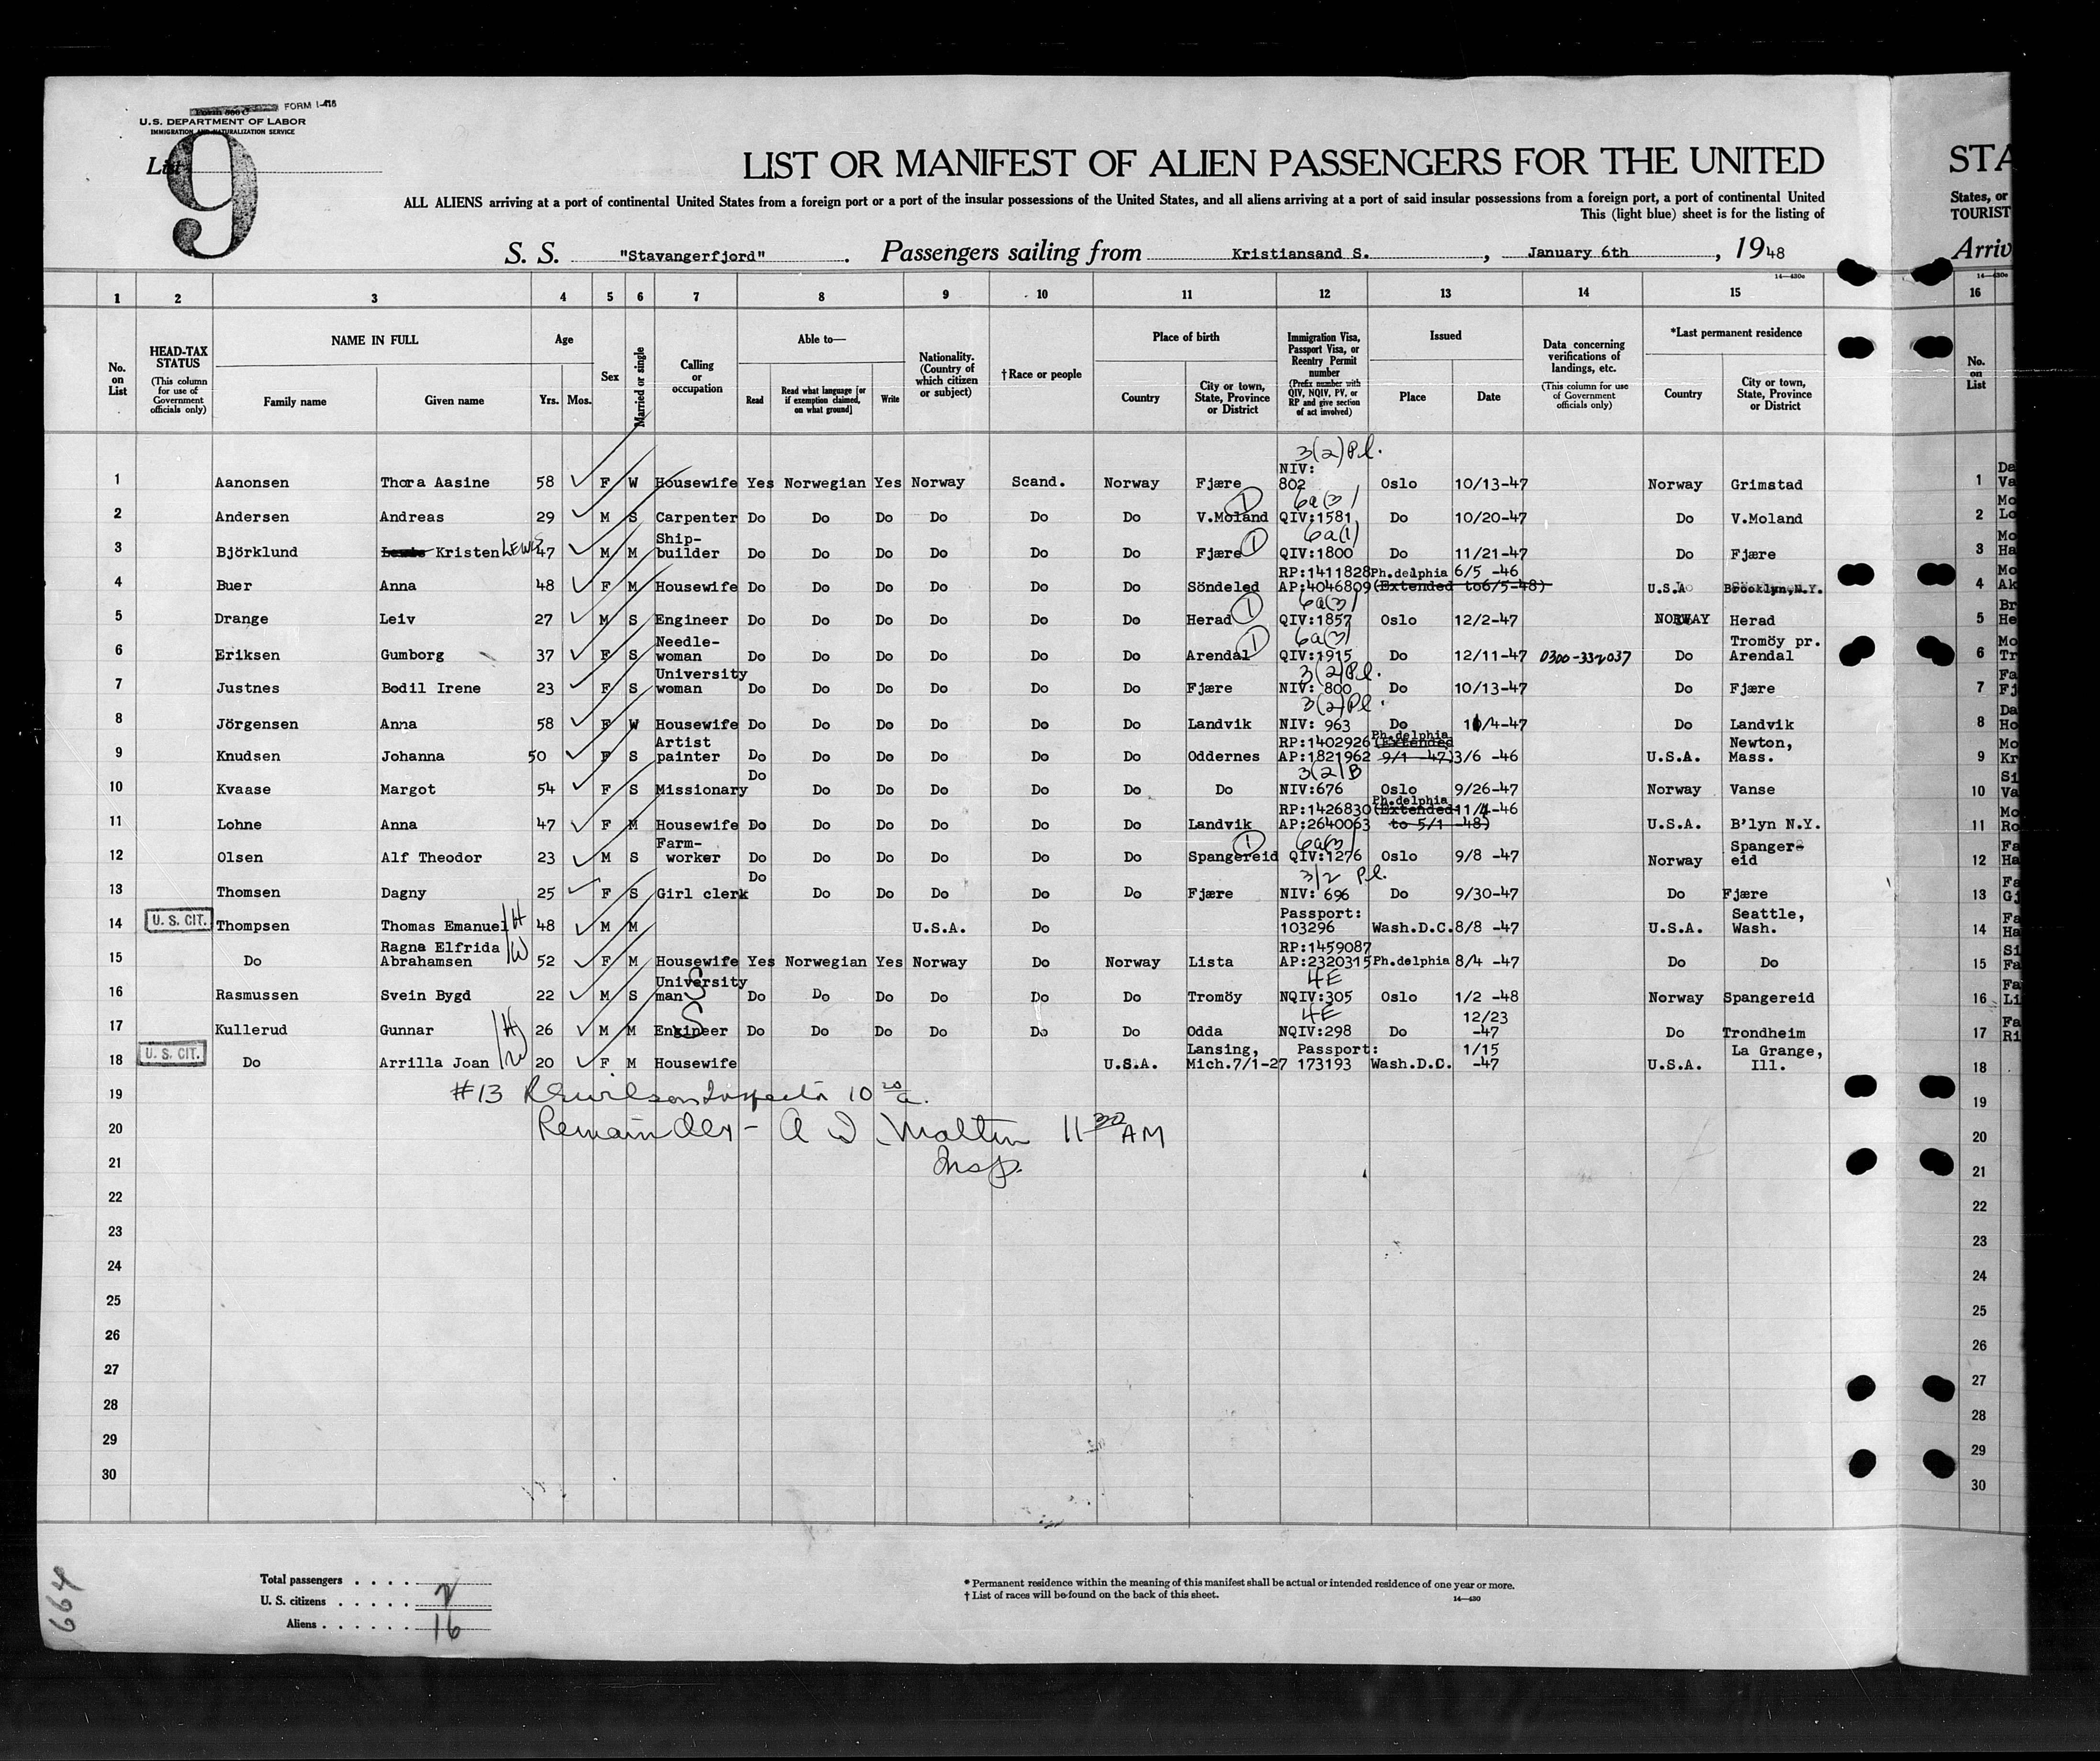 Form 500 C FORM I-415
U.S. DEPARTMENT OF LABOR
IMMIGRATION AND NATURALIZATION SERVICE
List 9
LIST OR MANIFEST OF ALIEN PASSENGERS FOR THE UNITED STA
ALL ALIENS arriving at a port of continental United States from a foreign port or a port of the insular possessions of the United States, and all aliens arriving at a port of said insular possessions from a foreign port, a port of continental United States, or
This (light blue) sheet is for the listing of TOURIST
S. S. "Stavangerfjord" . Passengers sailing from Kristiansand S. , January 6th , 1948 Arriv
14—430c 14—430c
1 2 3 4 5 6 7 8 9 10 11 12 13 14 15 16
No. on List HEAD-TAX STATUS (This column for use of Government officials only) NAME IN FULL Family name Given name Age Yrs. Mos. Sex Married or single Calling or occupation Able to— Read Read what language [or if exemption claimed, on what ground] Write Nationality. (Country of which citizen or subject) †Race or people Place of birth Country City or town, State, Province or District Immigration Visa, Passport Visa, or Reentry Permit number (Prefix number with QIV, NQIV, PV, or RP and give section of act involved) Issued Place Date Data concerning verifications of landings, etc. (This column for use of Government officials only) *Last permanent residence Country City or town, State, Province or District No. on List
1 Aanonsen Thora Aasine 58 F W Housewife Yes Norwegian Yes Norway Scand. Norway Fjære 3(2)Pl. NIV: 802 Oslo 10/13-47 Norway Grimstad 1 Da Va
2 Andersen Andreas 29 M S Carpenter Do Do Do Do Do Do V.Moland 1 6a(3) QIV:1581 Do 10/20-47 Do V.Moland 2 Mo Lo
3 Björklund Lewis Kristen LEWIS 47 M M Ship-builder Do Do Do Do Do Do Fjære 1 6a(1) QIV:1800 Do 11/21-47 Do Fjære 3 Mo Ha
4 Buer Anna 48 F M Housewife Do Do Do Do Do Do Söndeled RP:1411828 AP:4046809 Ph.delphia 6/5 -46 (Extended to6/5-48) U.S.A Brooklyn,N.Y. 4 Mo Ak
5 Drange Leiv 27 M S Engineer Do Do Do Do Do Do Herad 1 6a(3) QIV:1857 Oslo 12/2-47 NORWAY Herad 5 Br He
6 Eriksen Gumborg 37 F S Needle-woman Do Do Do Do Do Do Arendal 1 6a(3) QIV:1915 Do 12/11-47 0300-332037 Do Tromöy pr. Arendal 6 Mo Tr
7 Justnes Bodil Irene 23 F S University woman Do Do Do Do Do Do Fjære 3(2)Pl. NIV: 800 Do 10/13-47 Do Fjære 7 Fa Fj
8 Jörgensen Anna 58 F W Housewife Do Do Do Do Do Do Landvik 3(2)Pl. NIV: 963 Do /4-47 Do Landvik 8 Da Ho
9 Knudsen Johanna 50 F S Artist painter Do Do Do Do Do Do Oddernes RP:1402926 AP:1821962 Ph.delphia (Extended 9/1 -47) 3/6 -46 U.S.A. Newton, Mass. 9 Mo Kr
10 Kvaase Margot 54 F S Missionary Do Do Do Do Do Do Do 3(2)B NIV:676 Oslo 9/26-47 Norway Vanse 10 Si Va
11 Lohne Anna 47 F M Housewife Do Do Do Do Do Do Landvik RP:1426830 AP:2640063 Ph.delphia (Extended to 5/1 -48) 11/1-46 U.S.A. B'lyn N.Y. 11 Mo Ro
12 Olsen Alf Theodor 23 M S Farm-worker Do Do Do Do Do Do Spangereid 1 6a(3) QIV:1276 Oslo 9/8 -47 Norway Spanger-eid 12 Fa Ha
13 Thomsen Dagny 25 F S Girl clerk Do Do Do Do Do Do Fjære 3/2 Pl. NIV: 696 Do 9/30-47 Do Fjære 13 Fa Gj
14 U. S. CIT. Thompsen Thomas Emanuel H 48 M M U.S.A. Do Passport: 103296 Wash.D.C. 8/8 -47 U.S.A. Seattle, Wash. 14 Fa Ha
15 Do Ragna Elfrida Abrahamsen W 52 F M Housewife Yes Norwegian Yes Norway Do Norway Lista RP:1459087 AP:2320315 Ph.delphia 8/4 -47 Do Do 15 Si Fa
16 Rasmussen Svein Bygd 22 M S University man S Do Do Do Do Do Do Tromöy 4E NQIV:305 Oslo 1/2 -48 Norway Spangereid 16 Fa Li
17 Kullerud Gunnar H 26 M M Engineer S Do Do Do Do Do Do Odda 4E NQIV:298 Do 12/23 -47 Do Trondheim 17 Fa Ri
18 U. S. CIT. Do Arrilla Joan W 20 F M Housewife U.S.A. Lansing, Mich.7/1-27 Passport: 173193 Wash.D.C. 1/15 -47 U.S.A. La Grange, Ill. 18
19 #13 Inspector 10 20 a. 19
20 Remainder - A W 11 30 AM 20
21 Insp. 21
22 22
23 23
24 24
25 25
26 26
27 27
28 28
29 29
30 30
664
Total passengers . . . .
U. S. citizens . . . . . 2
Aliens . . . . . . 16
* Permanent residence within the meaning of this manifest shall be actual or intended residence of one year or more.
† List of races will be found on the back of this sheet.
14—430